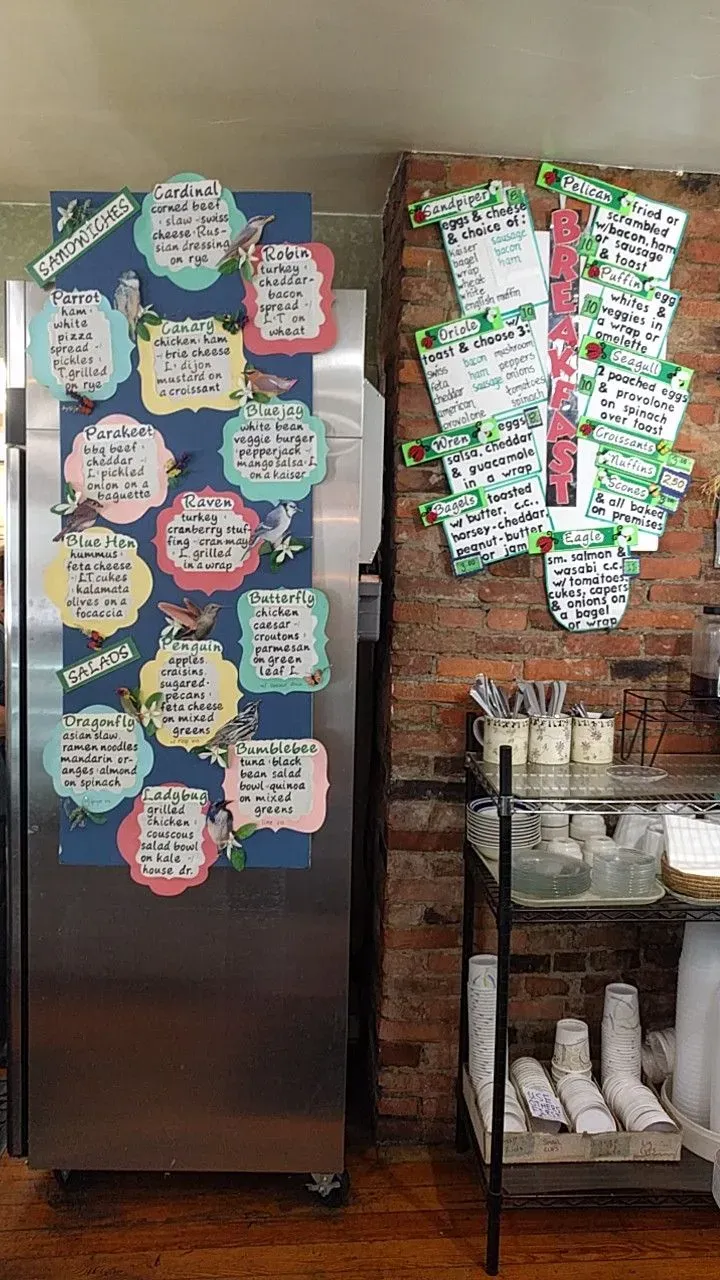 SANDWICHES
Cardinal
corned beef
· slaw · swiss
cheese · Rus-
sian dressing
on rye
Robin
turkey ·
cheddar ·
bacon
spread ·
L · T on
wheat
Parrot
ham ·
white
pizza
spread ·
pickles ·
T grilled
on rye
Canary
chicken · ham
· brie cheese
L · dijon
mustard on
a croissant
Bluejay
white bean
veggie burger
pepperjack ·
mango salsa · L
on a kaiser
Parakeet
bbq beef ·
cheddar ·
L · pickled
onion on a
baguette
Raven
turkey ·
cranberry stuf-
fing · cran-mayo
· L · grilled
in a wrap
Blue Hen
hummus ·
feta cheese
· LT cukes ·
kalamata
olives on a
focaccia
Butterfly
chicken
caesar ·
croutons ·
parmesan
on green
leaf L
SALADS
Penguin
apples ·
craisins ·
sugared
pecans ·
feta cheese
on mixed
greens
Dragonfly
asian slaw ·
ramen noodles
mandarin or-
anges · almond
on spinach
Bumblebee
tuna · black
bean salad
bowl · quinoa
on mixed
greens
Ladybug
grilled
chicken ·
couscous
salad bowl
on kale ·
house dr.
BREAKFAST
Sandpiper
eggs & cheese
& choice of:
kaiser sausage
bagel bacon
wrap ham
wheat
white
english muffin
Pelican
fried or
scrambled
w/bacon, ham
or sausage
& toast
10
Puffin
egg
whites &
veggies in
a wrap or
omelette
10
Oriole
10
toast & choose 3:
swiss bacon mushroom
feta ham peppers
cheddar sausage onions
american tomatoes
provolone spinach
Seagull
2 poached eggs
& provolone
on spinach
over toast
10
Wren
eggs,
salsa, cheddar
& guacamole
in a wrap
Croissants
Muffins
250
Scones
& all baked
on premises
Bagels
toasted
w/ butter, c.c.,
horsey-cheddar,
peanut-butter
or jam
Eagle
sm. salmon &
wasabi c.c.
w/ tomatoes,
cukes, capers
& onions on
a bagel
or wrap